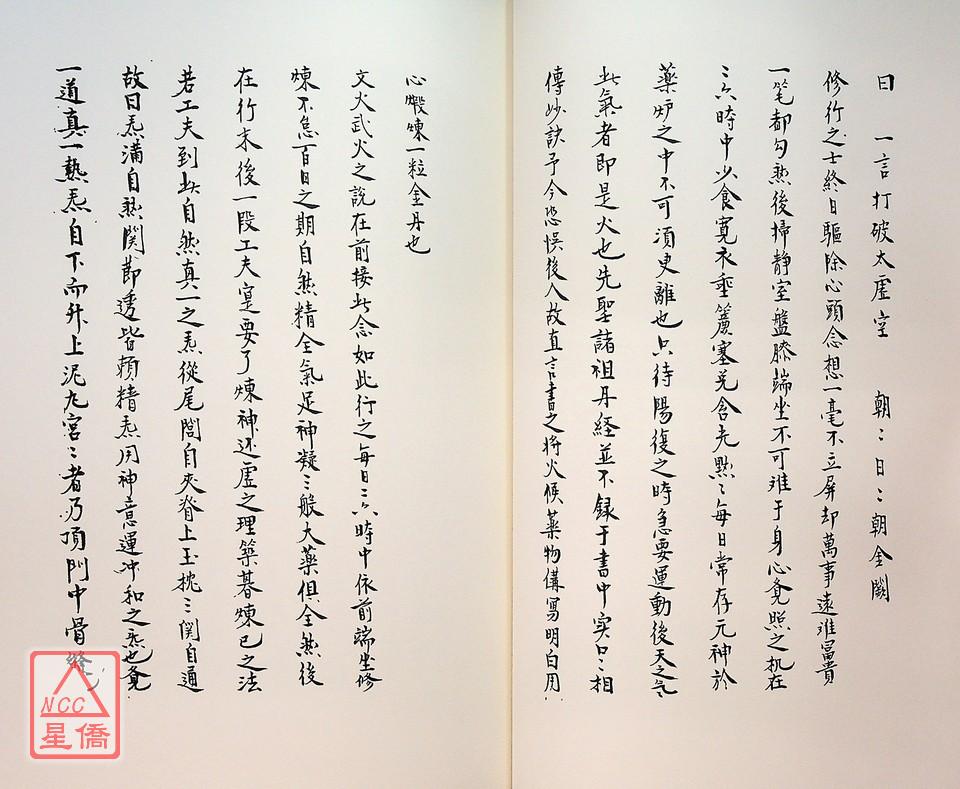 曰　一言打破太虛空　朝〻日〻朝金闕
修行之士終日驅除心頭念想一毫不立屏却萬事遠难冨貴
一笔都勾然後掃静室盤膝端坐不可难于身心覓照之机在
二六時中少食寛衣垂簾塞兑含光黙〻每日常存元神於
藥炉之中不可須史離也只待陽復之時急要運動後天之炁
此氣者即是火也先聖諸祖丹経並不録于書中实口〻相
傳妙訣予今恐悞後人故直言書之將火候藥物俻寫明白用
心煅煉一粒金丹也
文火武火之説在前接此念如此行之每日二六時中依前端坐修
煉不怠百日之期自然精全氣足神凝三般大藥俱全然後
在行末後一段工夫寔要了煉神还虛之理築基煉已之法
若工夫到此自然真一之炁從尾閭自夾脊上玉枕三関自通
故曰炁满自熱関節透皆頼精炁用神意運冲和之炁也覓
一道真一熱炁自下而升上泥九宮〻者乃頂門中骨縫
NCC
星僑